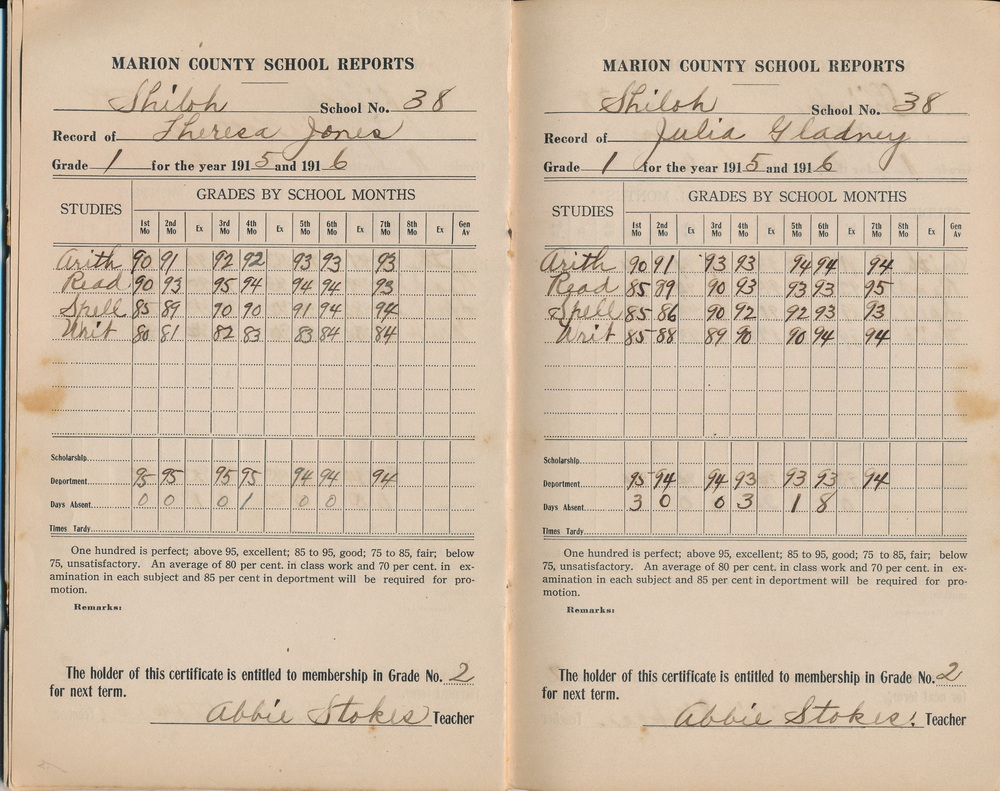 MARION COUNTY SCHOOL REPORTS
Shiloh School No. 38
Record of Theresa Jones
Grade 1 for the year 1915 and 1916
GRADES BY SCHOOL MONTHS
STUDIES
1st Mo 2nd Mo Ex 3rd Mo 4th Mo Ex 5th Mo 6th Mo Ex 7th Mo 8th Mo Ex Gen Av
Arith 90 91 92 92 93 93 93
Read 90 93 95 94 94 94 93
Spell 85 89 90 90 91 94 94
Writ 80 81 82 83 83 84 84
Scholarship
Department 95 95 95 95 94 94 94
Days Absent 0 0 0 1 0 0
Times Tardy
One hundred is perfect; above 95, excellent; 85 to 95, good; 75 to 85, fair; below
75, unsatisfactory. An average of 80 per cent. in class work and 70 per cent. in ex-
amination in each subject and 85 per cent in deportment will be required for pro-
motion.
Remarks:
The holder of this certificate is entitled to membership in Grade No. 2
for next term.
Abbie Stokes Teacher
MARION COUNTY SCHOOL REPORTS
Shiloh School No. 38
Record of Julia Gladney
Grade 1 for the year 1915 and 1916
GRADES BY SCHOOL MONTHS
STUDIES
1st Mo 2nd Mo Ex 3rd Mo 4th Mo Ex 5th Mo 6th Mo Ex 7th Mo 8th Mo Ex Gen Av
Arith 90 91 93 93 94 94 94
Read 85 89 90 93 93 93 95
Spell 85 86 90 92 92 93 93
Writ 85 88 89 90 90 94 94
Scholarship
Department 95 94 94 93 93 93 94
Days Absent 3 0 0 3 1 8
Times Tardy
One hundred is perfect; above 95, excellent; 85 to 95, good; 75 to 85, fair; below
75, unsatisfactory. An average of 80 per cent. in class work and 70 per cent. in ex-
amination in each subject and 85 per cent in deportment will be required for pro-
motion.
Remarks:
The holder of this certificate is entitled to membership in Grade No. 2
for next term.
Abbie Stokes. Teacher